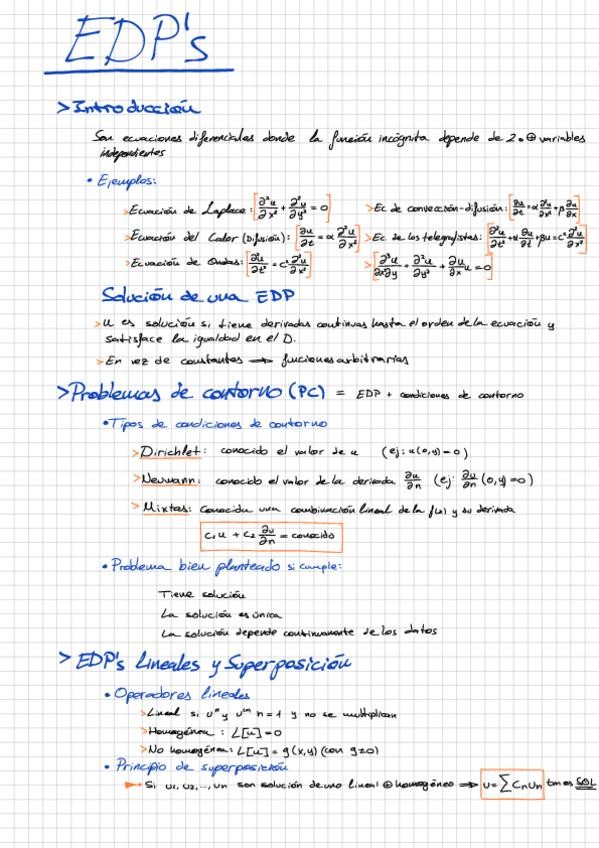 EDP's
> Introducción
Son ecuaciones diferenciales donde la función incógnita depende de 2 o ⊕ variables
independientes
• Ejemplos:
> Ecuación de Laplace: [∂²u/∂x² + ∂²u/∂y² = 0] > Ec de convección-difusión: [∂u/∂t = α ∂²u/∂x² + β ∂u/∂x]
> Ecuación del Calor (Difusión): [∂u/∂t = α ∂²u/∂x²] > Ec de los telegrafistas: [∂²u/∂t² + α ∂u/∂t + βu = c² ∂²u/∂x²]
> Ecuación de Ondas: [∂²u/∂t² = c² ∂²u/∂x²] > [∂²u/∂x∂y + ∂²u/∂y² + ∂u/∂x u = 0]
Solución de una EDP
> u es solución si, tiene derivadas continuas hasta el orden de la ecuación y
satisface la igualdad en el D.
> En vez de constantes → funciones arbitrarias
> Problemas de contorno (PC) = EDP + condiciones de contorno
• Tipos de condiciones de contorno
> Dirichlet: conocido el valor de u (ej: u(0,y)=0)
> Neumann: conocido el valor de la derivada ∂u/∂n (ej: ∂u/∂n (0,y)=0)
> Mixtas: Conocida una combinación lineal de la f(u) y su derivada
C₁u + C₂ ∂u/∂n = conocido
• Problema bien planteado si cumple:
Tiene solución
La solución es única
La solución depende continuamente de los datos
> EDP's Lineales y Superposición
• Operadores lineales
> Lineal si uⁿ y uᵐ n=1 y no se multiplican
> Homogénea: L[u]=0
> No homogénea: L[u] = g(x,y) (con g≠0)
• Principio de superposición
Si u1, u2, ..., un son solución de uno lineal ⊕ homogéneo ⇒ u = ∑ Cn Un tm es SOL